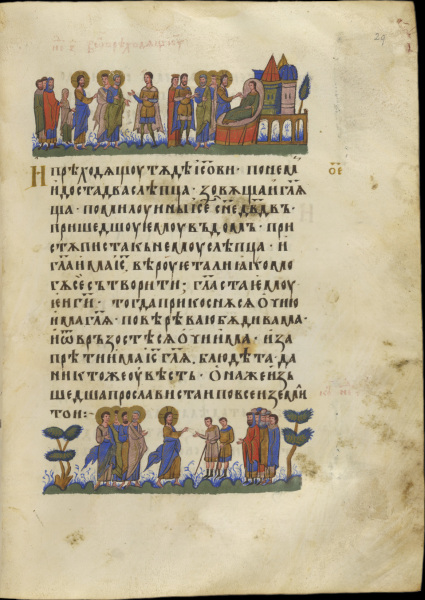 29
И прѣходѧщоу тѫдѣ і҃сови · по нем
идоста два слѣпца · зовѫща и гл҃ѧ
ща · помилоуи ны і҃се сн҃е дв҃двъ ·
пришедшоу емоу въ домъ · при
стѫписта къ немоу слѣпца · и
гл҃а има і҃с · вѣроуета ли ꙗко мо
гѫ се сътворити ; гл҃аста емоу
еи г҃и · тогда прикоснѫ сѧ очию
има гл҃ѧ · по вѣрѣ ваю бѫди вама ·
и ѿврьзосте сѧ очи има · и за
прѣти има і҃с гл҃ѧ · блюдѣта да
никтоже оувѣсть · она же изъ
шедша прослависта и по всеи земли
тои :~